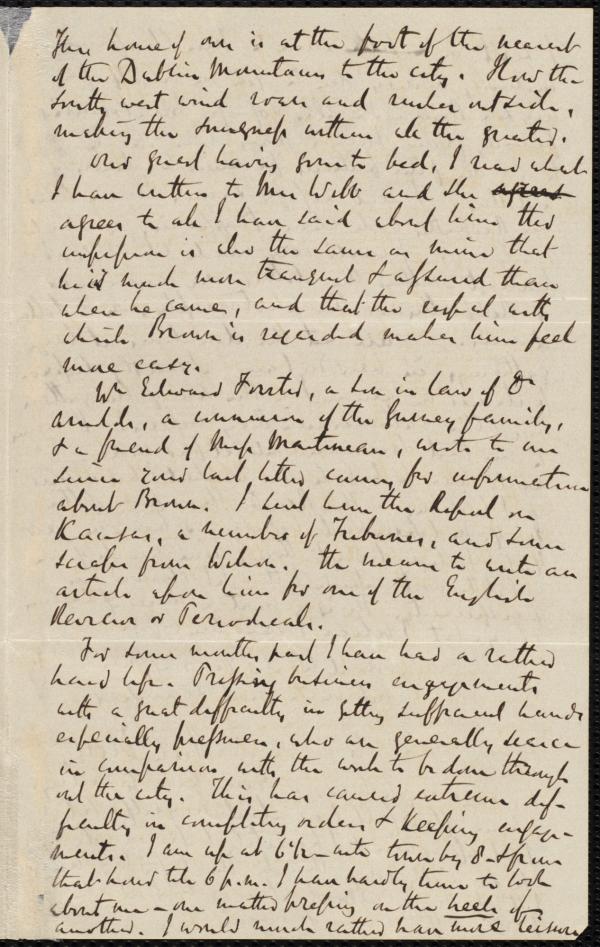 This home of ours is at the foot of the nearest
of the Dublin Mountains to the city. How the
south west wind roars and rushes outside,
making the snugness within all the greater.
Our guest having gone to bed, I read what
I have written to Mrs Webb and she agrees
agrees to all I have said about him. Her
impression is also the same as mine that
he is much more tranquil & assured than
when he came, and that the respect with
which Brown is regarded makes him feel
more easy.
Wm Edward Forster, a son in law of Dr
Arnold, a connexion of the Gurney family,
& a friend of Miss Martineau, wrote to me
since your last letter came, for information
about Brown. I sent him the Report on
Kansas, a number of Tribunes, and some
scraps from Wilson. He means to write an
article upon him for one of the English
Reviews or Periodicals.
For some months past I have had a rather
hard life. Pressing business engagements
with a great difficulty in getting sufficient hands
especially pressmen, who are generally scarce
in comparison with the work to be done through
out the city. This has caused extreme dif-
ficulty in completing orders & keeping engage-
ments. I am up at 6 - into town by 8 - & from
that hour till 6 p.m. I have hardly time to look
about me - one matter pressing on the heels of
another. I would much rather have more leisure